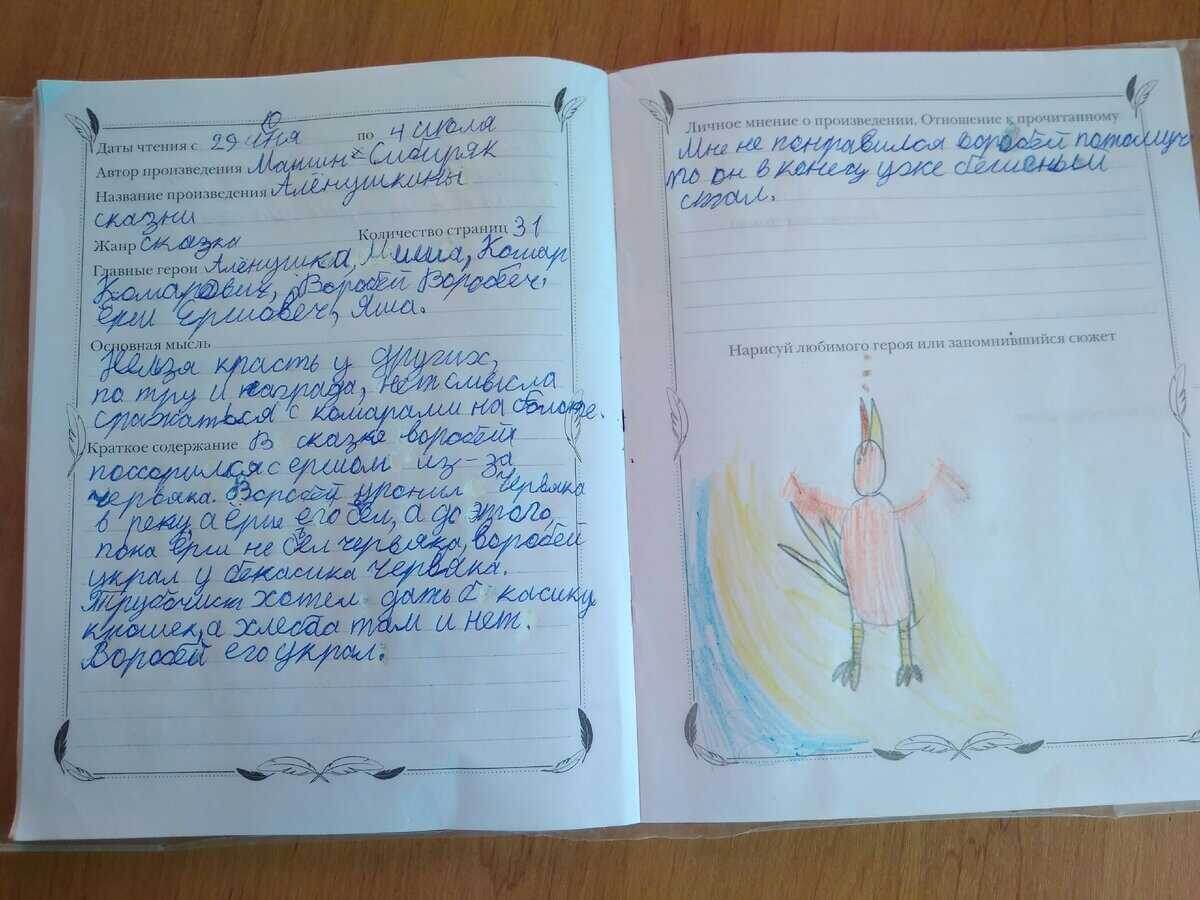 Даты чтения с 29 июня по 4 июля
Автор произведения Мамин-Сибиряк
Название произведения Алёнушкины
сказки
Жанр сказка Количество страниц 31
Главные герои Алёнушка, Миша, Комар
Комарович, Воробей Воробеч.
ёрш Ершовеч, Яша.
Основная мысль
Нельзя красть у других,
по тру и награда, нет смысла
сражаться с комарами на болоте.
Краткое содержание В сказке воробей
поссорился с ершом из-за
червяка. Воробей уронил червяка
в реку, а ёрш его сёл, а до этого,
пока ёрш не сёл червяка, воробей
украл у бекасика червяка.
Трубочист хотел дать б касику
крошек, а хлеба там и нет.
Воробей его украл.
Личное мнение о произведении. Отношение к прочитанному
Мне не понравился воробей потомуч
то он в конецу уже бешеный
стал.
Нарисуй любимого героя или запомнившийся сюжет